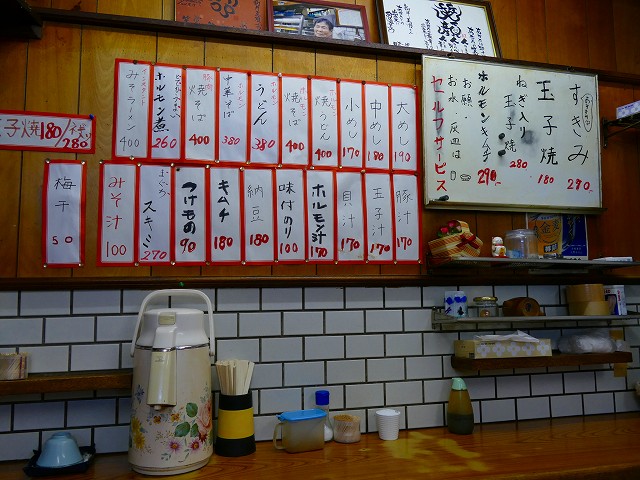 玉子焼180/
280
インスタント
みそラーメン
400
ホルモン煮
260
豚肉
焼そば
400
中華そば
380
ホルモン
うどん
380
ホルモン
焼そば
400
焼うどん
400
小めし
170
中めし
180
大めし
190
梅干
50
みそ汁
100
まぐろ
スキミ
270
つけもの
90
キムチ
180
納豆
180
味つけのり
100
ホルモン汁
170
貝汁
170
玉子汁
170
豚汁
170
すきみ
270
玉子焼
180
ねぎ入り
玉子焼
280
ホルモンキムチ
290
お願い
お水、灰皿は
セルフサービス